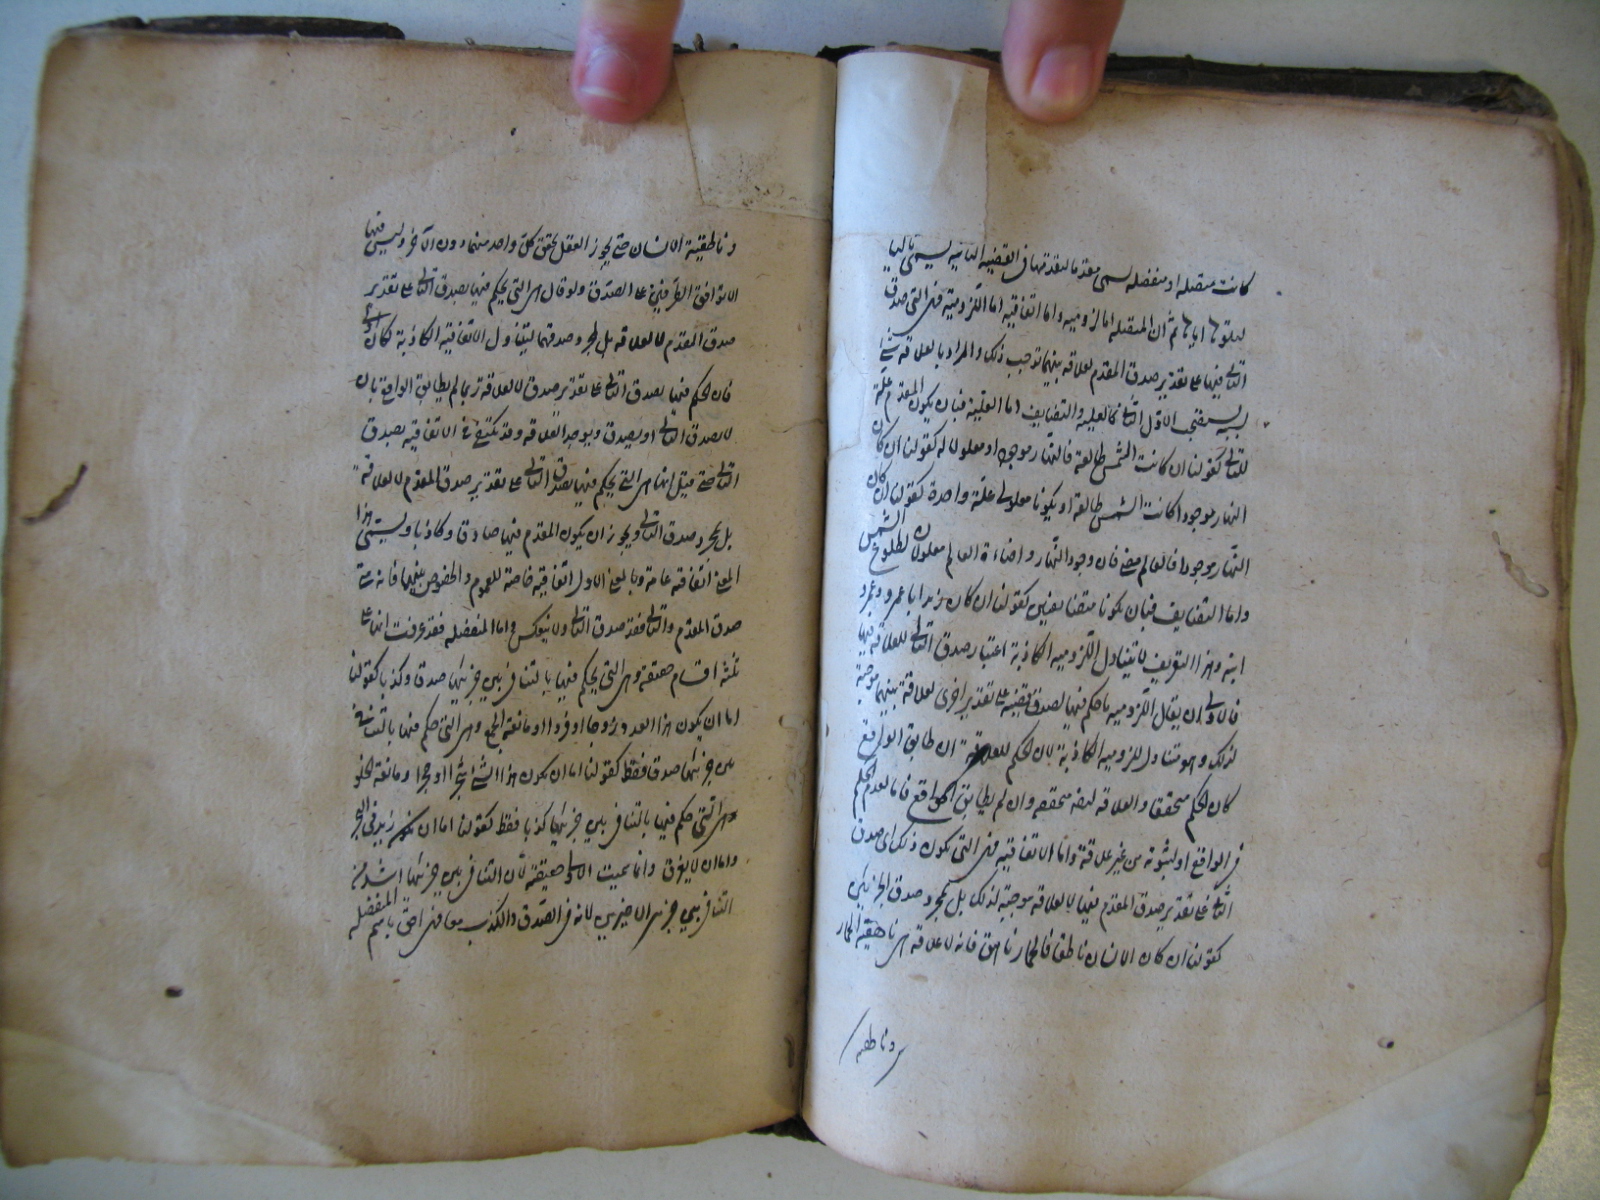 كانت متصلة او منفصلة يسمى مقدما لتقدمها في القضية الثانية يسمى تاليا
لتلوها اياها ثم ان المتصلة اما لزومية واما اتفاقية اما اللزومية فهي التي صدق
التالي فيها على تقدير صدق المقدم لعلاقة بينهما توجب ذلك والمراد بالعلاقة شيء
بسببه يستصحب الاول الثاني كالعلية والتضايف اما العلية فبان يكون المقدم علة
للتالي كقولنا ان كانت الشمس طالعة فالنهار موجود او معلولا له كقولنا ان كان
النهار موجودا كانت الشمس طالعة او يكونا معلولي علة واحدة كقولنا ان كان
النهار موجودا فالعالم مضيء فان وجود النهار واضاءة العالم معلولان لطلوع الشمس
واما التضايف فبان يكونا متضايفين كقولنا ان كان زيد ابا عمرو وعمرو
ابنه وهذا التعريف لا يتناول اللزومية الكاذبة اعتبار صدق التالي للعلاقة فيها
فالاولى ان يقال اللزومية ما حكم فيها بصدق قضية على تقدير اخرى لعلاقة بينهما موجبة
لذلك وهو متناول للزومية الكاذبة لان الحكم للعلاقة ان طابق الواقع
كان الحكم متحققا والعلاقة ايضا متحققة وان لم يطابق الواقع فاما لعدم الحكم
في الواقع او لثبوته من غير علاقة واما الاتفاقية فهي التي يكون ذلك اي صدق
التالي على تقدير صدق المقدم فيها لا لعلاقة موجبة لذلك بل بمجرد صدق الجزئين
كقولنا ان كان الانسان ناطقا فالحمار ناهق فانه لا علاقة بين ناهقية الحمار
وناطقية
وناطقية الانسان حتى يجوز العقل تحقق كل واحد منهما دون الآخر وليس فيها
الا توافق الطرفين على الصدق ولو قال هي التي يحكم فيها بصدق التالي على تقدير
صدق المقدم لا لعلاقة بل لمجرد صدقهما ليتناول الاتفاقية الكاذبة لكان اولى
فان الحكم فيها بصدق التالي على تقدير صدق لا لعلاقة ربما لم يطابق الواقع بان
لا يصدق التالي او يصدق ويوجد العلاقة وقد يكتفى في الاتفاقية بصدق
التالي حتى قيل انها هي التي يحكم فيها بصدق التالي على تقدير صدق المقدم لا لعلاقة
بل بمجرد صدق التالي ويجوز ان يكون المقدم فيها صادقا وكاذبا ويسمى بهذا
المعنى اتفاقية عامة وبالمعنى الاول اتفاقية خاصة للعموم والخصوص بينهما فانه متى
صدق المقدم والتالي فقد صدق التالي ولا ينعكس واما المنفصلة فقد عرفت انها على
ثلثة اقسام حقيقة وهي التي يحكم فيها بالتنافي بين جزئيها صدقا وكذبا كقولنا
اما ان يكون هذا العدد زوجا او فردا او مانعة الجمع وهي التي حكم فيها بالتنافي
بين جزئيها صدقا فقط كقولنا اما ان يكون هذا الشيء شجرا او حجرا ومانعة الخلو
وهي التي حكم فيها بالتنافي بين جزئيها كذبا فقط كقولنا اما ان يكون زيد في البحر
واما ان لا يغرق وانما سميت الاولى حقيقة لان التنافي بين جزئيها اشد من
التنافي بين جزئي الاخيرين لانه في الصدق والكذب معا فهي احق باسم المنفصلة